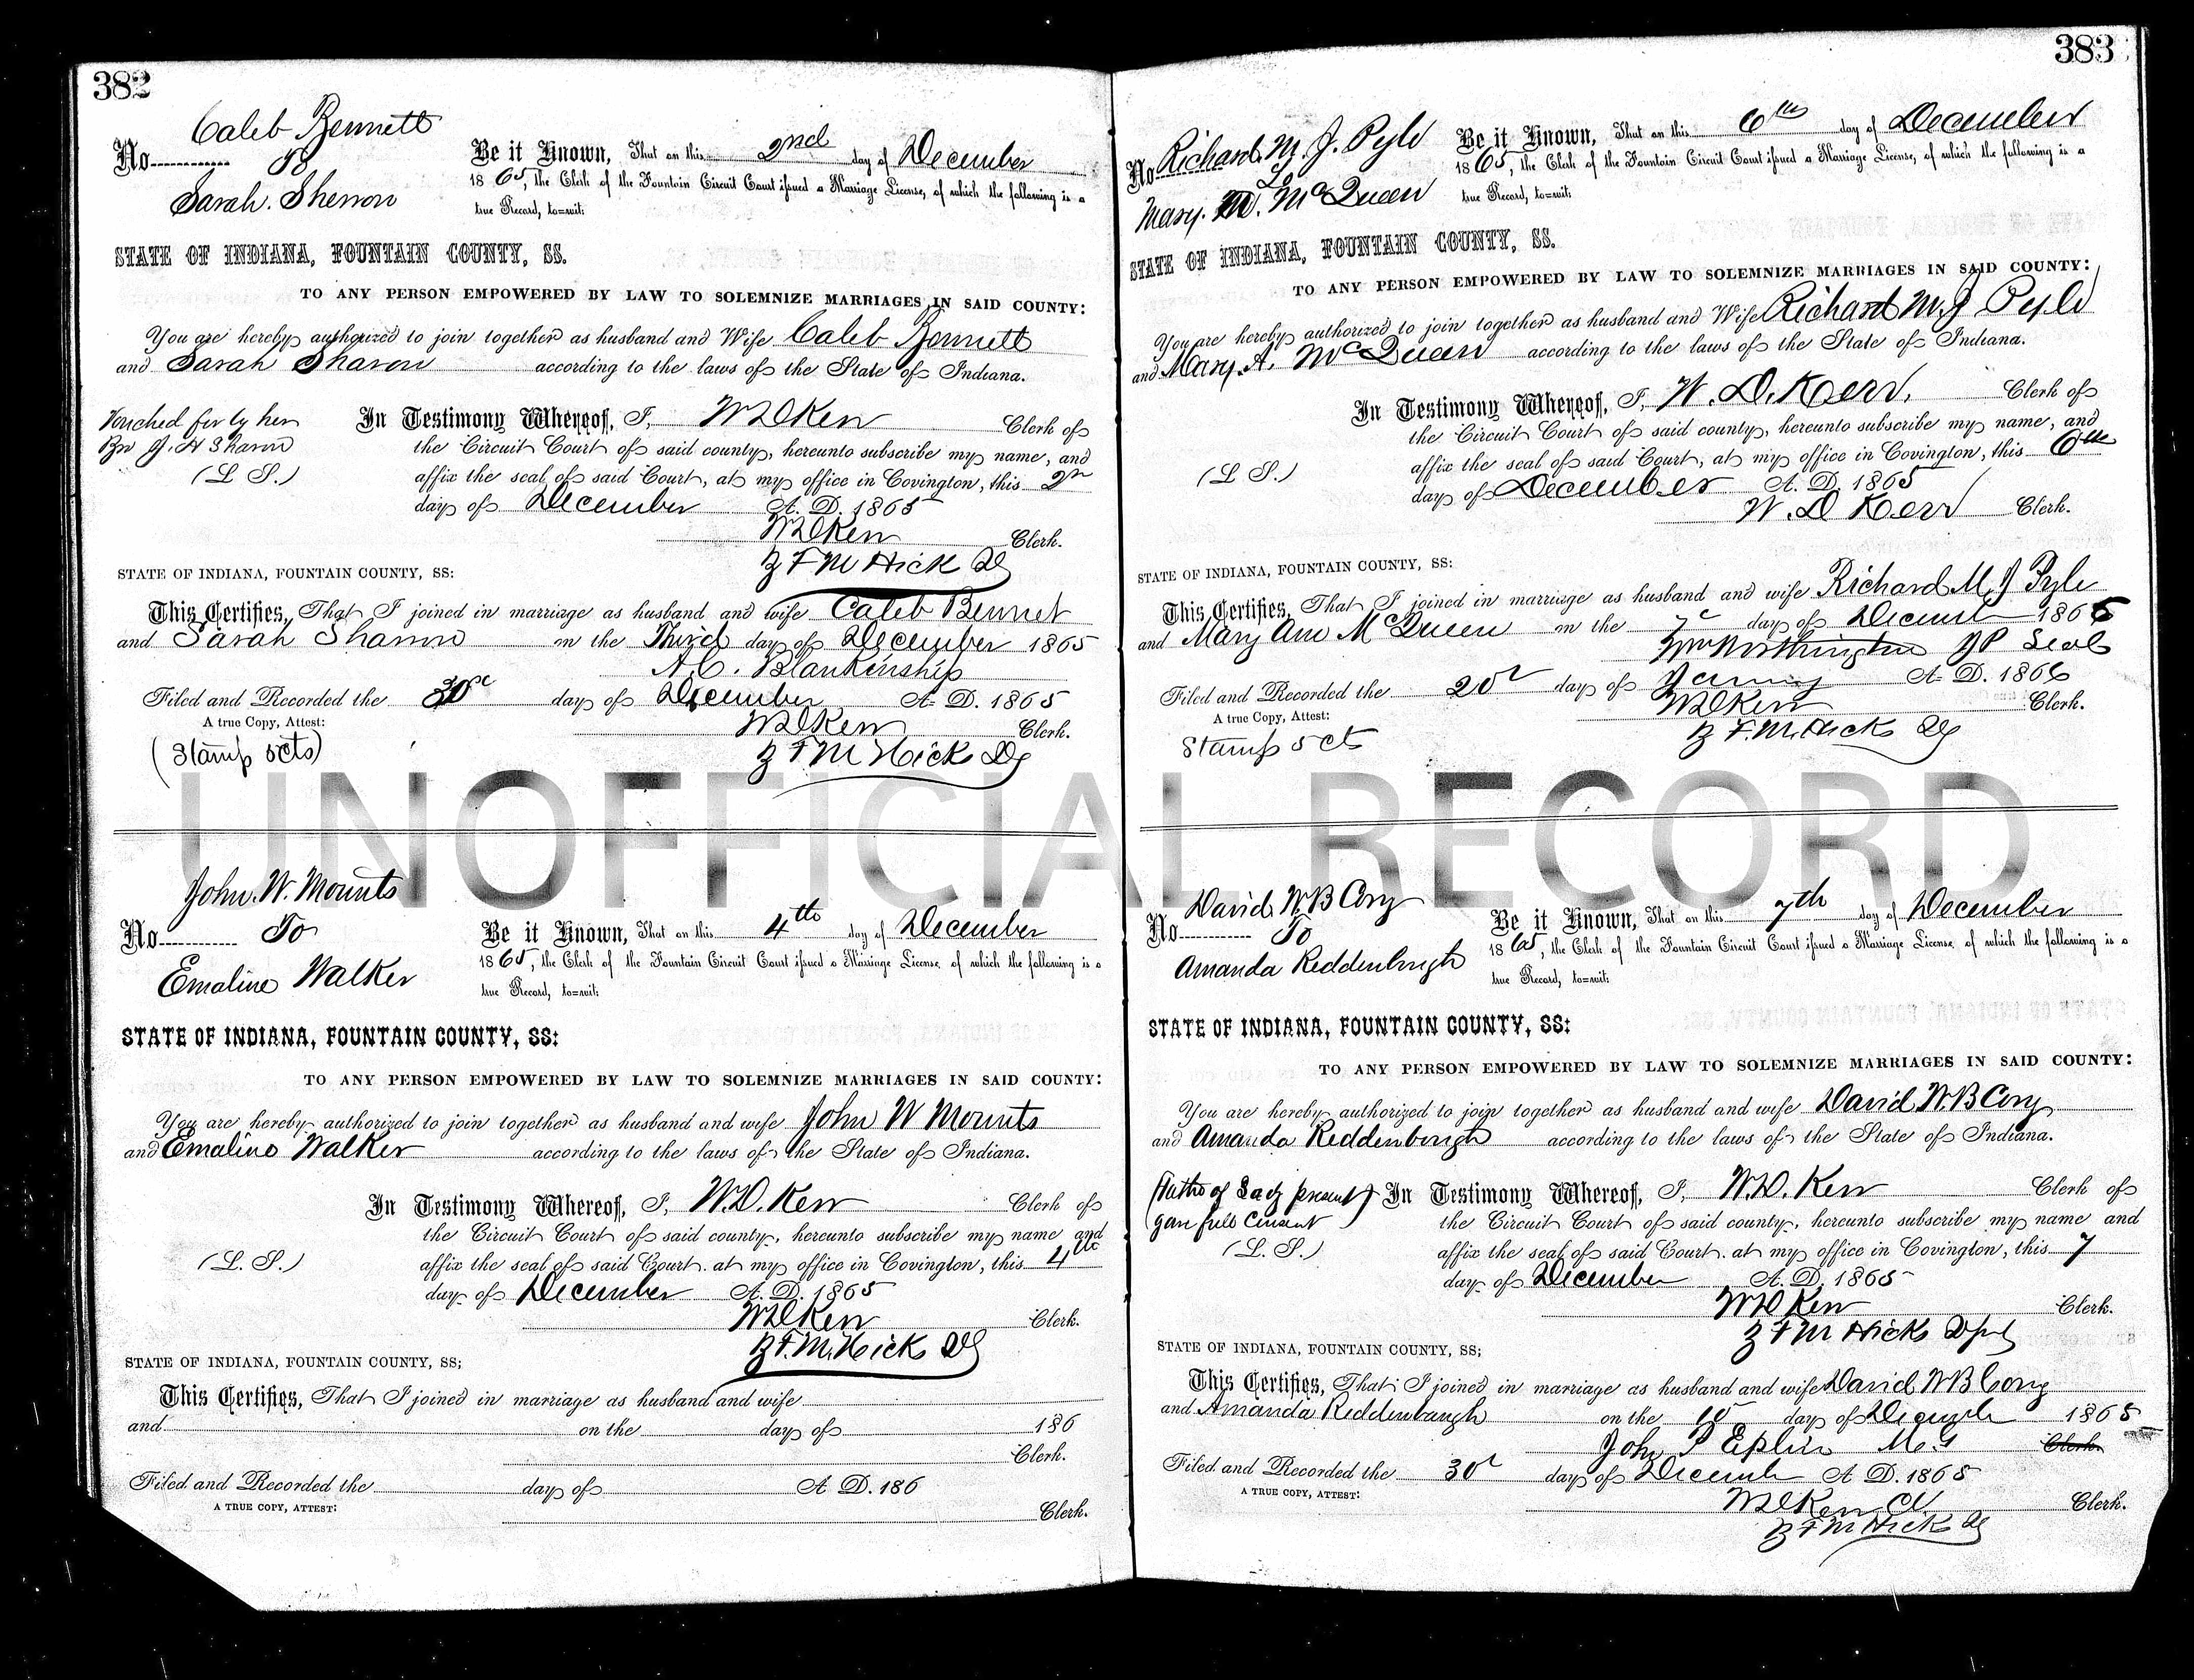 382
Caleb Bennett
No
To
Sarah. Sherron
Be it Known, That on this 2nd day of December
1865, the Clerk of the Fountain Circuit Court issued a Marriage License, of which the following is a
true Record, to=wit:
STATE OF INDIANA, FOUNTAIN COUNTY, SS.
TO ANY PERSON EMPOWERED BY LAW TO SOLEMNIZE MARRIAGES IN SAID COUNTY:
You are hereby authorized to join together as husband and Wife Caleb Bennett
and Sarah Sharon according to the laws of the State of Indiana.
Vouched for by her
Bro J. H Sharon
(L S.)
In Testimony Whereof, I, W D Kerr Clerk of
the Circuit Court of said county, hereunto subscribe my name, and
affix the seal of said Court, at my office in Covington, this 2n
day of December A. D. 1865
W D Kerr Clerk.
B F M Hick Dy
STATE OF INDIANA, FOUNTAIN COUNTY, SS:
This Certifies, That I joined in marriage as husband and wife Caleb Bennet
and Sarah Sharron on the Third day of December 1865
A. C. Blankenship
Filed and Recorded the 30 day of December A. D. 1865
A true Copy, Attest:
W D Kerr Clerk.
(Stamp 5cts)
B F M Hicks Dy
John. W. Mounts
No
To
Emaline Walker
Be it Known, That on this 4th day of December
1865, the Clerk of the Fountain Circuit Court issued a Marriage License, of which the following is a
true Record, to=wit:
STATE OF INDIANA, FOUNTAIN COUNTY, SS:
TO ANY PERSON EMPOWERED BY LAW TO SOLEMNIZE MARRIAGES IN SAID COUNTY:
You are hereby authorized to join together as husband and wife John W Mounts
and Emaline Walker according to the laws of the State of Indiana.
In Testimony Whereof, I, W. D. Kerr Clerk of
the Circuit Court of said county, hereunto subscribe my name and
(L. S.)
affix the seal of said Court. at my office in Covington, this 4th
day of December A. D. 1865
W D Kerr Clerk.
B F. M. Hicks Dy
STATE OF INDIANA, FOUNTAIN COUNTY, SS;
This Certifies, That I joined in marriage as husband and wife
and on the day of 186
Clerk.
Filed and Recorded the day of A D. 186
A TRUE COPY, ATTEST:
Clerk.
383
No Richard. M. J. Pyle
To
Mary. M. McQueen
Be it Known, That on this 6th day of December
1865, the Clerk of the Fountain Circuit Court issued a Marriage License, of which the following is a
true Record, to=wit:
STATE OF INDIANA, FOUNTAIN COUNTY, SS.
TO ANY PERSON EMPOWERED BY LAW TO SOLEMNIZE MARRIAGES IN SAID COUNTY:
You are hereby authorized to join together as husband and Wife Richard M. J Pyle
and Mary. A. McQueen according to the laws of the State of Indiana.
In Testimony Whereof, I, W. D. Kerr. Clerk of
the Circuit Court of said county, hereunto subscribe my name, and
(L S.)
affix the seal of said Court, at my office in Covington, this 6th
day of December A. D. 1865
W. D Kerr Clerk.
STATE OF INDIANA, FOUNTAIN COUNTY, SS:
This Certifies, That I joined in marriage as husband and wife Richard M. J Pyle
and Mary Ann McQueen on the 7 day of Decem 1865
Wm Worthington JP Seal
Filed and Recorded the 20 day of January A. D. 1866
A true Copy, Attest:
W D Kerr Clerk.
Stamp 5 cts
B F. M. Hicks Dy
David. W B Cory
No
To
Amanda Reddenbough
Be it Known, That on this 7th day of December
1865, the Clerk of the Fountain Circuit Court issued a Marriage License, of which the following is a
true Record, to=wit:
STATE OF INDIANA, FOUNTAIN COUNTY, SS:
TO ANY PERSON EMPOWERED BY LAW TO SOLEMNIZE MARRIAGES IN SAID COUNTY:
You are hereby authorized to join together as husband and wife David W. B Cory
and Amanda Reddenbough according to the laws of the State of Indiana.
(Father of Lady present &
gave full Consent
(L. S.)
In Testimony Whereof, I, W. D. Kerr Clerk of
the Circuit Court of said county, hereunto subscribe my name and
affix the seal of said Court. at my office in Covington, this 7
day of December A. D. 1865
W D Kerr Clerk.
B F M Hicks Dpy
STATE OF INDIANA, FOUNTAIN COUNTY, SS;
This Certifies, That I joined in marriage as husband and wife David W B Cory
and Amanda Reddenbaugh on the 10 day of December 1865
John P Eplin M. G Clerk.
Filed and Recorded the 30 day of December A D. 1865
A TRUE COPY, ATTEST:
W D Kerr Cl Clerk.
B F M Hicks Dy
UNOFFICIAL RECORD